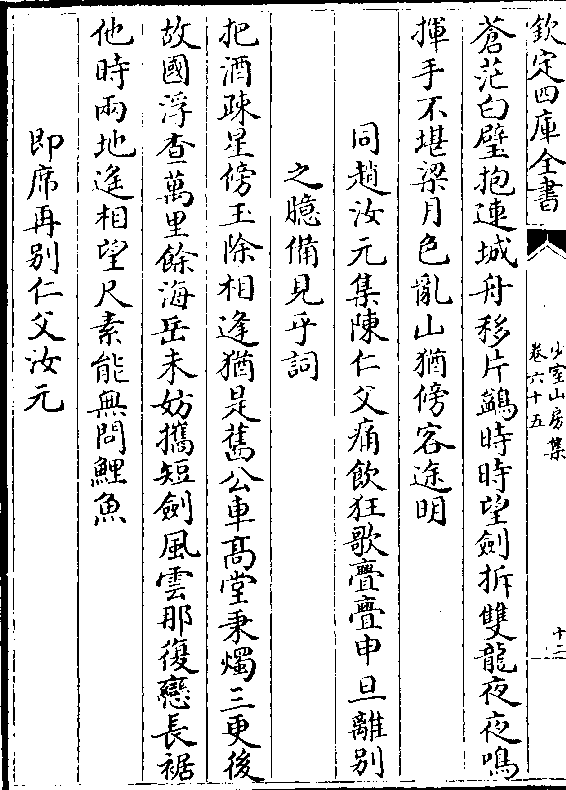 欽定四庫全書
少室山房集
卷六十五
十二
蒼茫白璧抱連城舟移片鷁時時望劍拆雙龍夜夜鳴
揮手不堪梁月色亂山猶傍客途明
同趙汝元集陳仁父痛飲狂歌亹亹申旦離别
之臆備見乎詞
把酒疎星傍玉除相逢猶是舊公車髙堂秉燭三更後
故國浮查萬里餘海岳未妨攜短劍風雲那復戀長裾
他時兩地遙相望尺素能無問鯉魚
即席再别仁父汝元